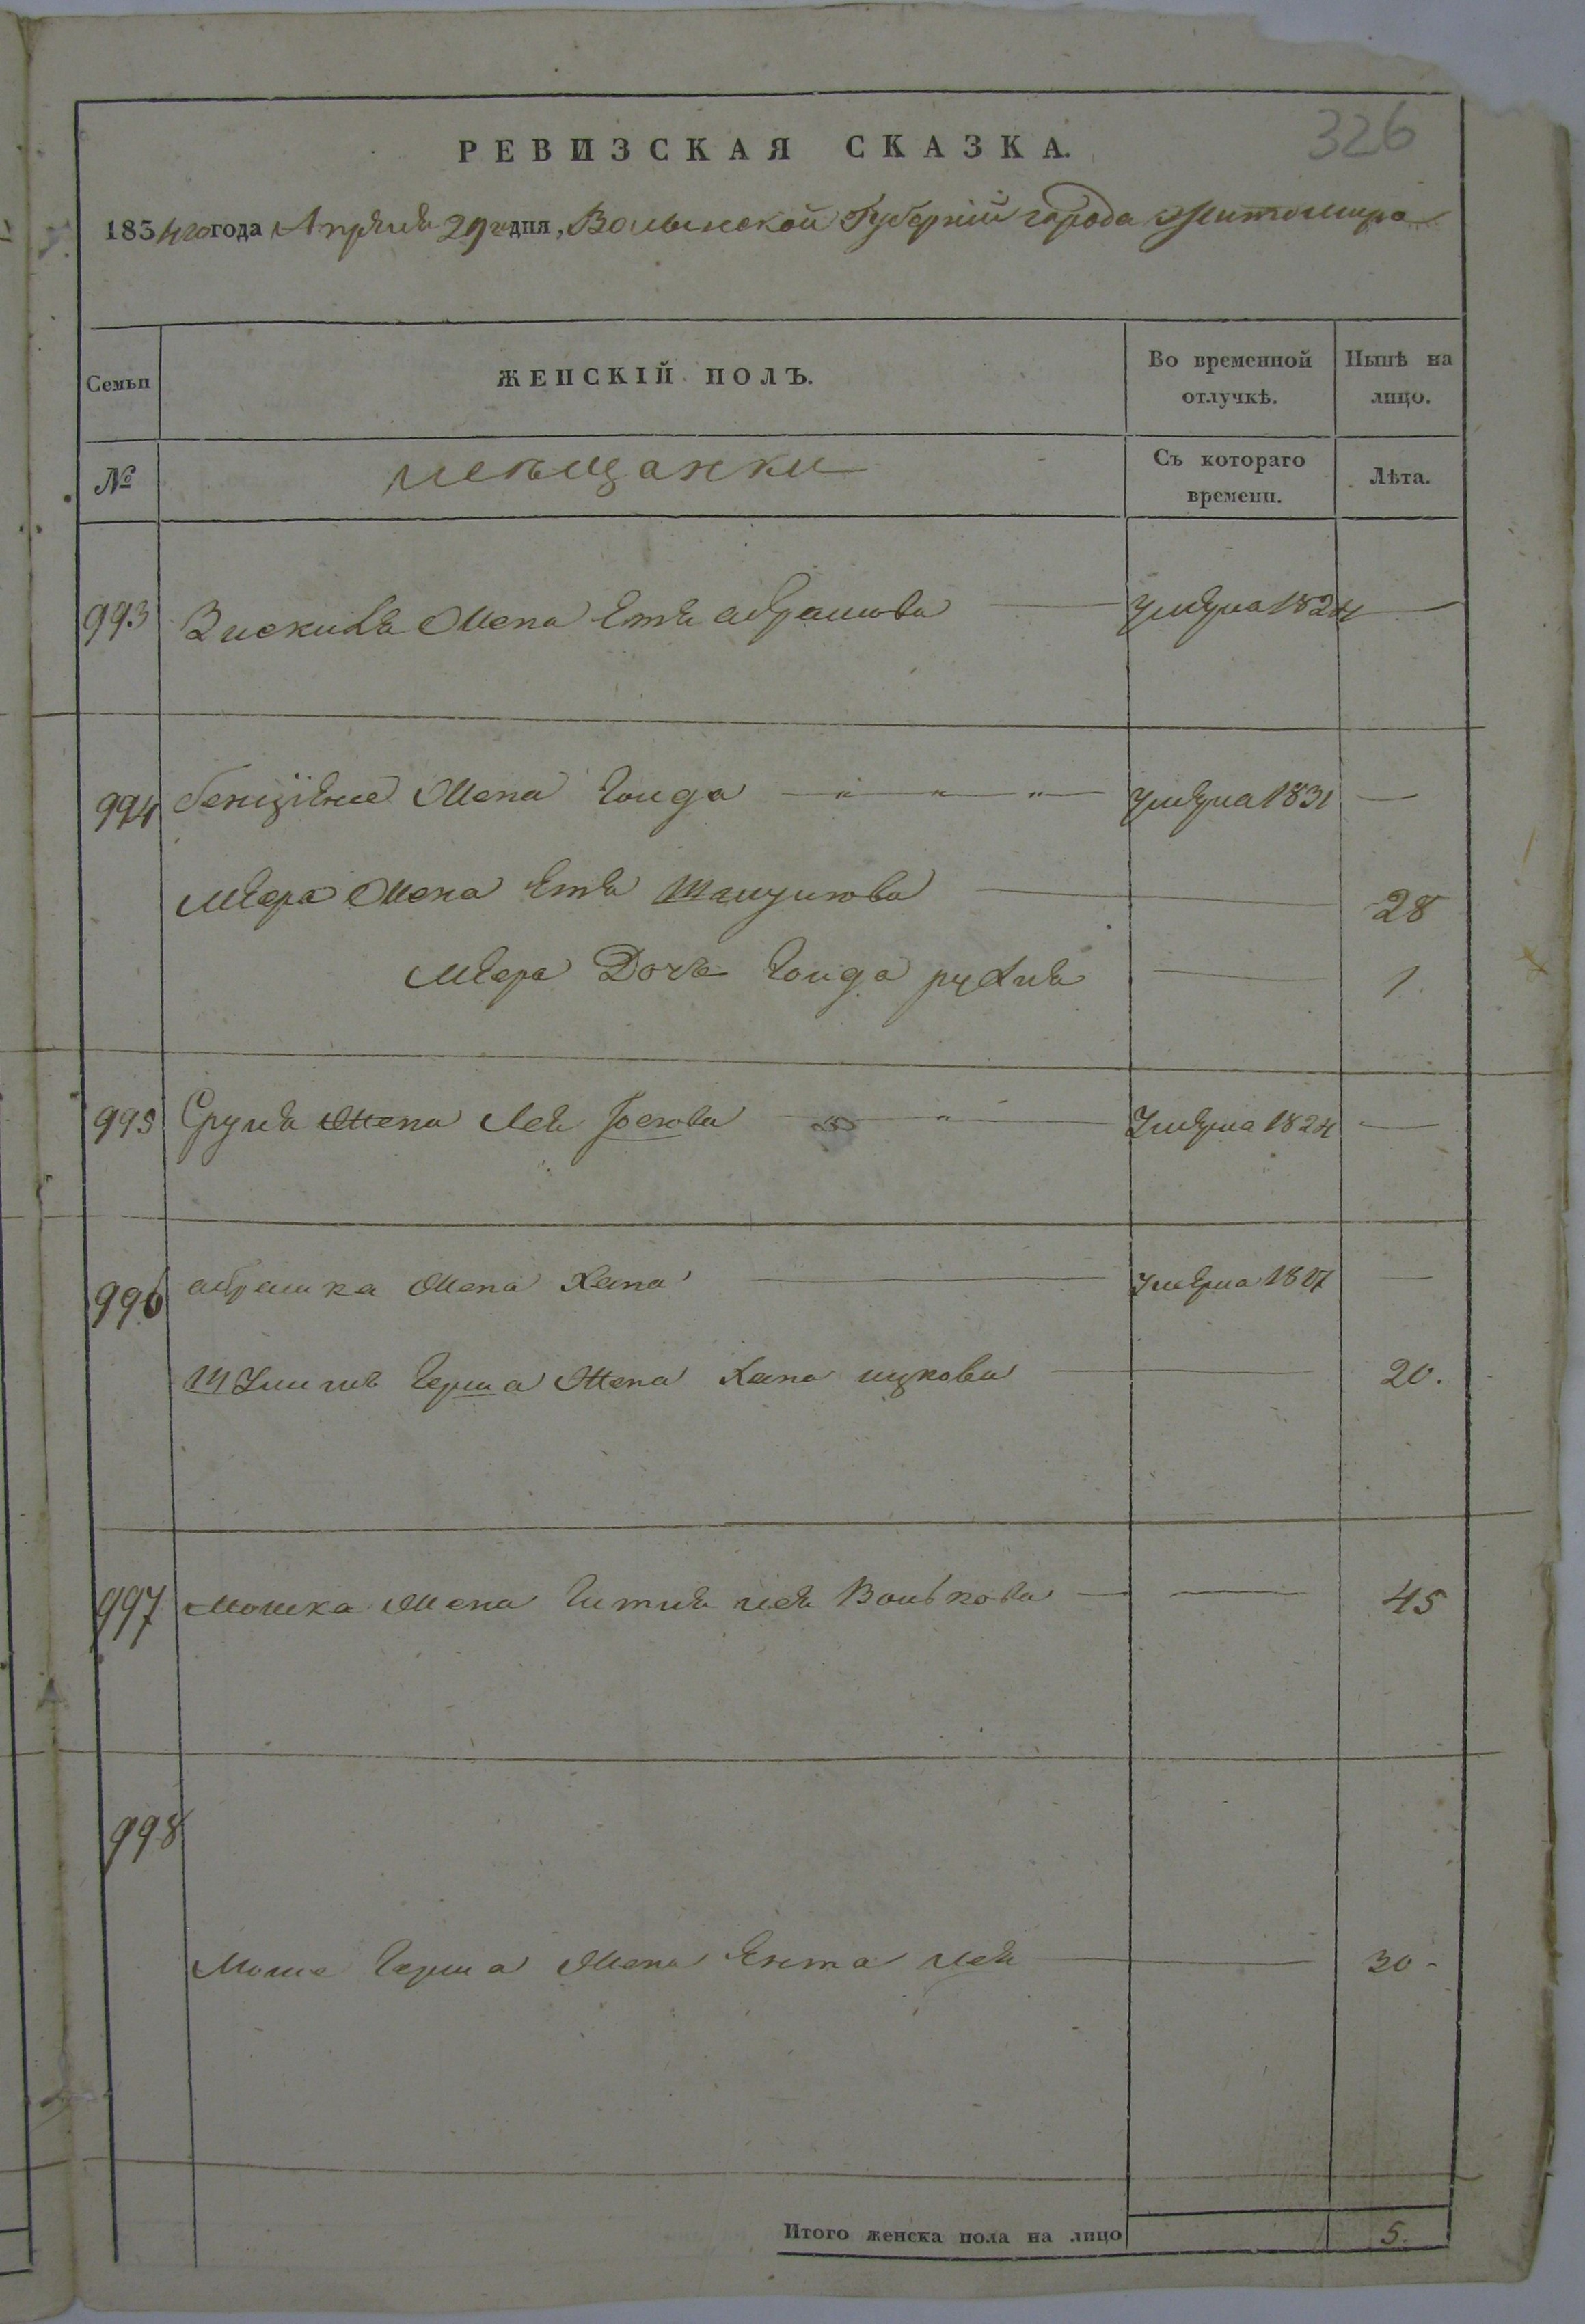 326
РЕВИЗСКАЯ СКАЗКА.
1834го года Апреля 29го дня, Волынской Губерніи города Житомира
Семьи
ЖЕНСКІЙ ПОЛЪ.
Во временной отлучкѣ.
Нынѣ на лицо.
№
мещанки
Съ котораго времени.
Лѣта.
993 Зискиля Жена Етя абрамова — умерла 1824 —
994 Жена Голда — " — " — " — умерла 1831 —
Меера Жена Етя Шмулиова — 28
Меера Дочь Голда рухля — 1
995 Сруля Жена Лея Іосева — " — умерла 1824 —
996 абрамка Жена Хана — умерла —
Герша Жена Хана ицкова — 20.
997 Мошка Жена Гитля лея Волькова — 45
998
Моше Герша Жена Ента лея — 30
Итого женска пола на лицо 5.